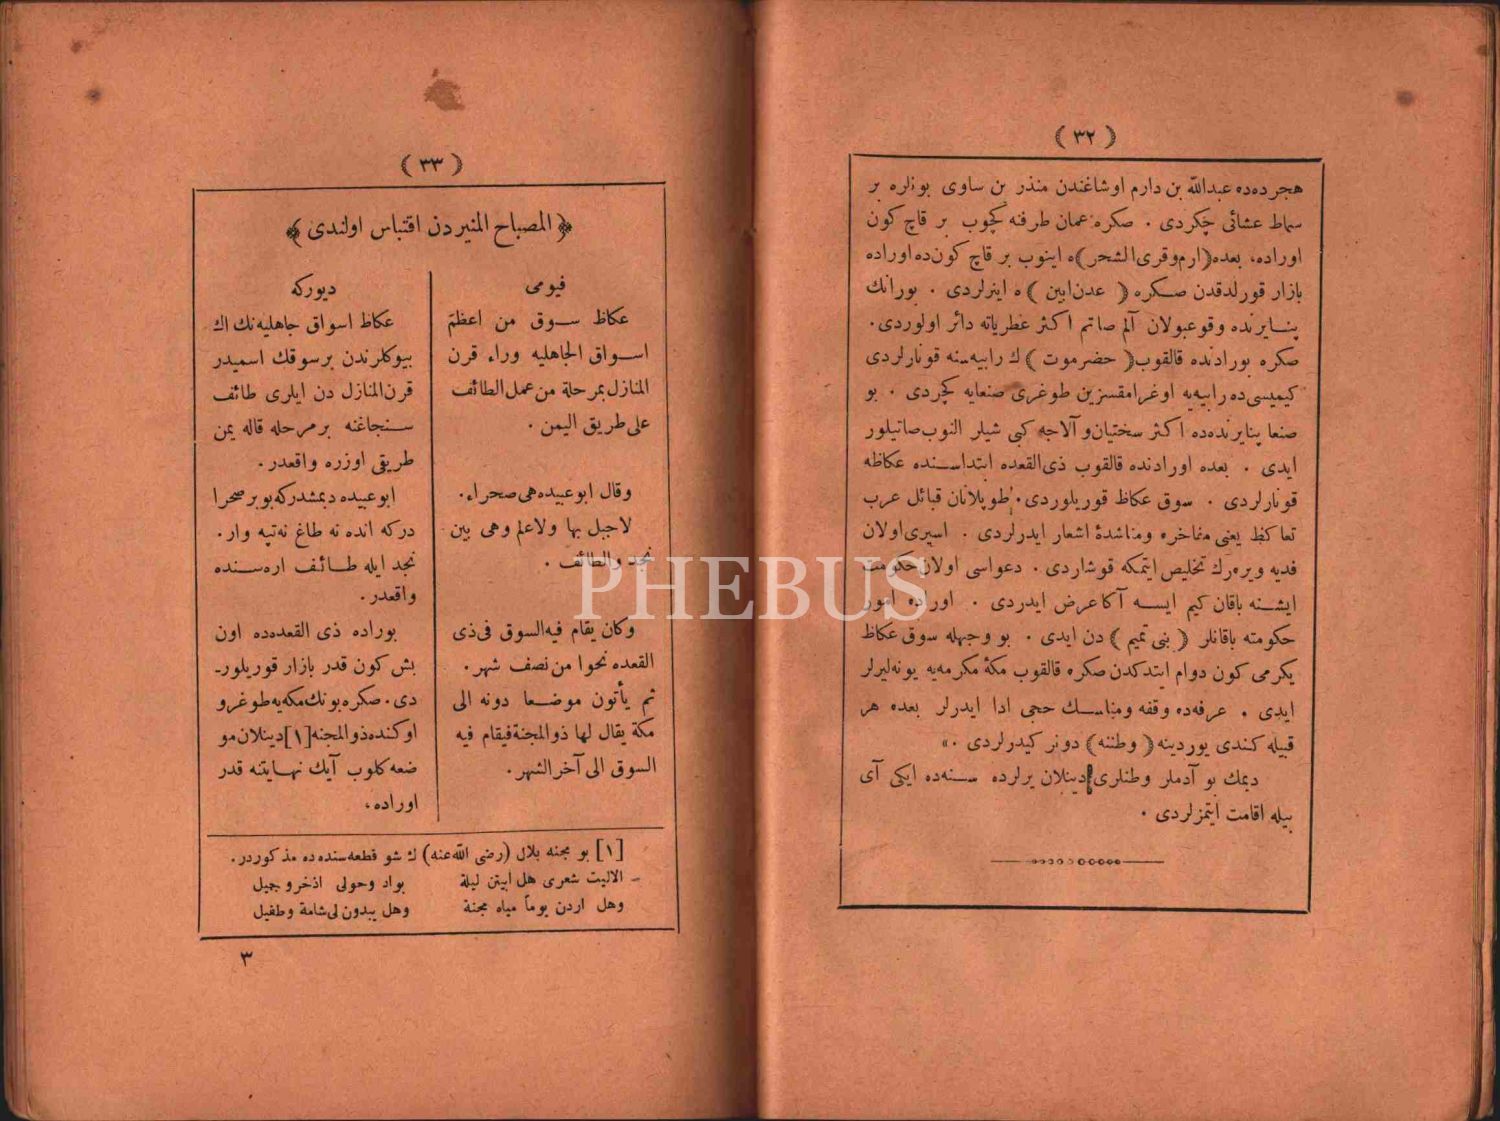 ( ٣٢ )
هجرده‌ده عبدالله بن دارم اوشاغندن منذر بن ساوی بونلره بر
سماط عشائی چکردی . صکره عمان طرفنه کچوب بر قاچ کون
اوراده، بعده (ارم وقری الشحر) ه اینوب بر قاچ کون‌ده اوراده
بازار قورلدقدن صکره ( عدن ابین ) ه اینرلردی . بورانك
پنایرنده وقوعبولان آلم صاتم اکثر عطریاته دائر اولوردی.
صکره بورادنده قالقوب ( حضرموت ) ك رابیه‌سنه قونارلردی
کیمیسی‌ده رابیه‌یه اوغرامقسزین طوغری صنعایه کچردی . بو
صنعا پنایرنده‌ده اکثر سختیان و آلاجه کبی شیلر النوب صاتیلور
ایدی . بعده اورادنده قالقوب ذی القعده ابتداسنده عکاظه
قونارلردی . سوق عکاظ قوریلوردی. طوپلانان قبائل عرب
تعاکظ یعنی مفاخره ومناشدۀ اشعار ایدرلردی . اسیری اولان
فدیه ویره‌رك تخلیص ایتمکه قوشاردی . دعواسی اولان حکومت
ایشنه باقان کیم ایسه آکا عرض ایدردی . اوراده امور
حکومته باقانلر ( بنی تمیم ) دن ایدی . بو وجهله سوق عکاظ
یکرمی کون دوام ایتدکدن صکره قالقوب مکۀ مکرمه‌یه یونه‌لیرلر
ایدی . عرفه‌ده وقفه ومناسك حجی ادا ایدرلر بعده هر
قبیله کندی یوردینه ( وطننه ) دونر کیدرلردی . »
دیمك بو آدملر وطنلری دینلان یرلرده سنه‌ده ایکی آی
بیله اقامت ایتمزلردی .
( ٣٣ )
﴿ المصباح المنیردن اقتباس اولندی ﴾
فیومی
عکاظ سوق من اعظم
اسواق الجاهلیه وراء قرن
المنازل بمرحلة من عمل الطائف
علی طریق الیمن .
وقال ابوعبیده هی صحراء.
لاجبل بها ولاعلم وهی بین
نجد والطائف .
وکان یقام فیه السوق فی ذی
القعده نحوا من نصف شهر.
ثم یأتون موضعا دونه الی
مکة یقال لها ذوالمجنة فیقام فیه
السوق الی آخر الشهر.
دیورکه
عکاظ اسواق جاهلیه‌نك اك
بیوکلرندن بر سوقك اسمیدر
قرن المنازل دن ایلری طائف
سنجاغنه بر مرحله قاله یمن
طریقی اوزره واقعدر.
ابوعبیده دیمشدرکه بو بر صحرا
درکه انده نه طاغ نه تپه وار.
نجد ایله طائف اره‌سنده
واقعدر.
بوراده ذی القعده‌ده اون
بش کون قدر بازار قوریلور-
دی. صکره بونك مکه‌یه طوغرو
اوکنده ذوالمجنه [١] دینلان مو
ضعه کلوب آیك نهایتنه قدر
اوراده،
[١] بو مجنه بلال (رضی الله عنه) ك شو قطعه سنده‌ده مذکوردر.
ـ الالیت شعری هل ابیتن لیلة بواد وحولی اذخر و جیل
وهل اردن یوماً میاه مجنة وهل یبدون لی شامة و طفیل
٣
PHEBUS